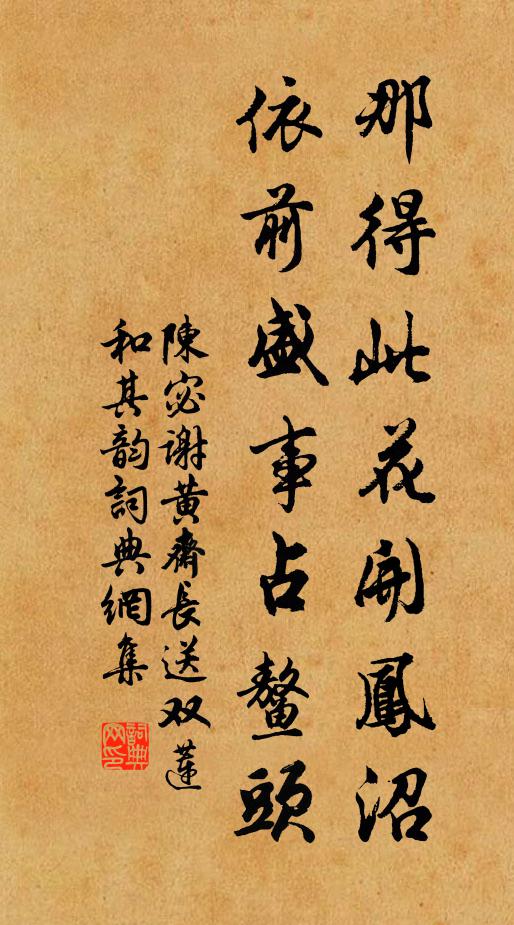 那得此花開鳳沼
依前盛事占鰲頭
陳宓謝黄齋長送双蓮
和其韵詞典網集
詞典網印